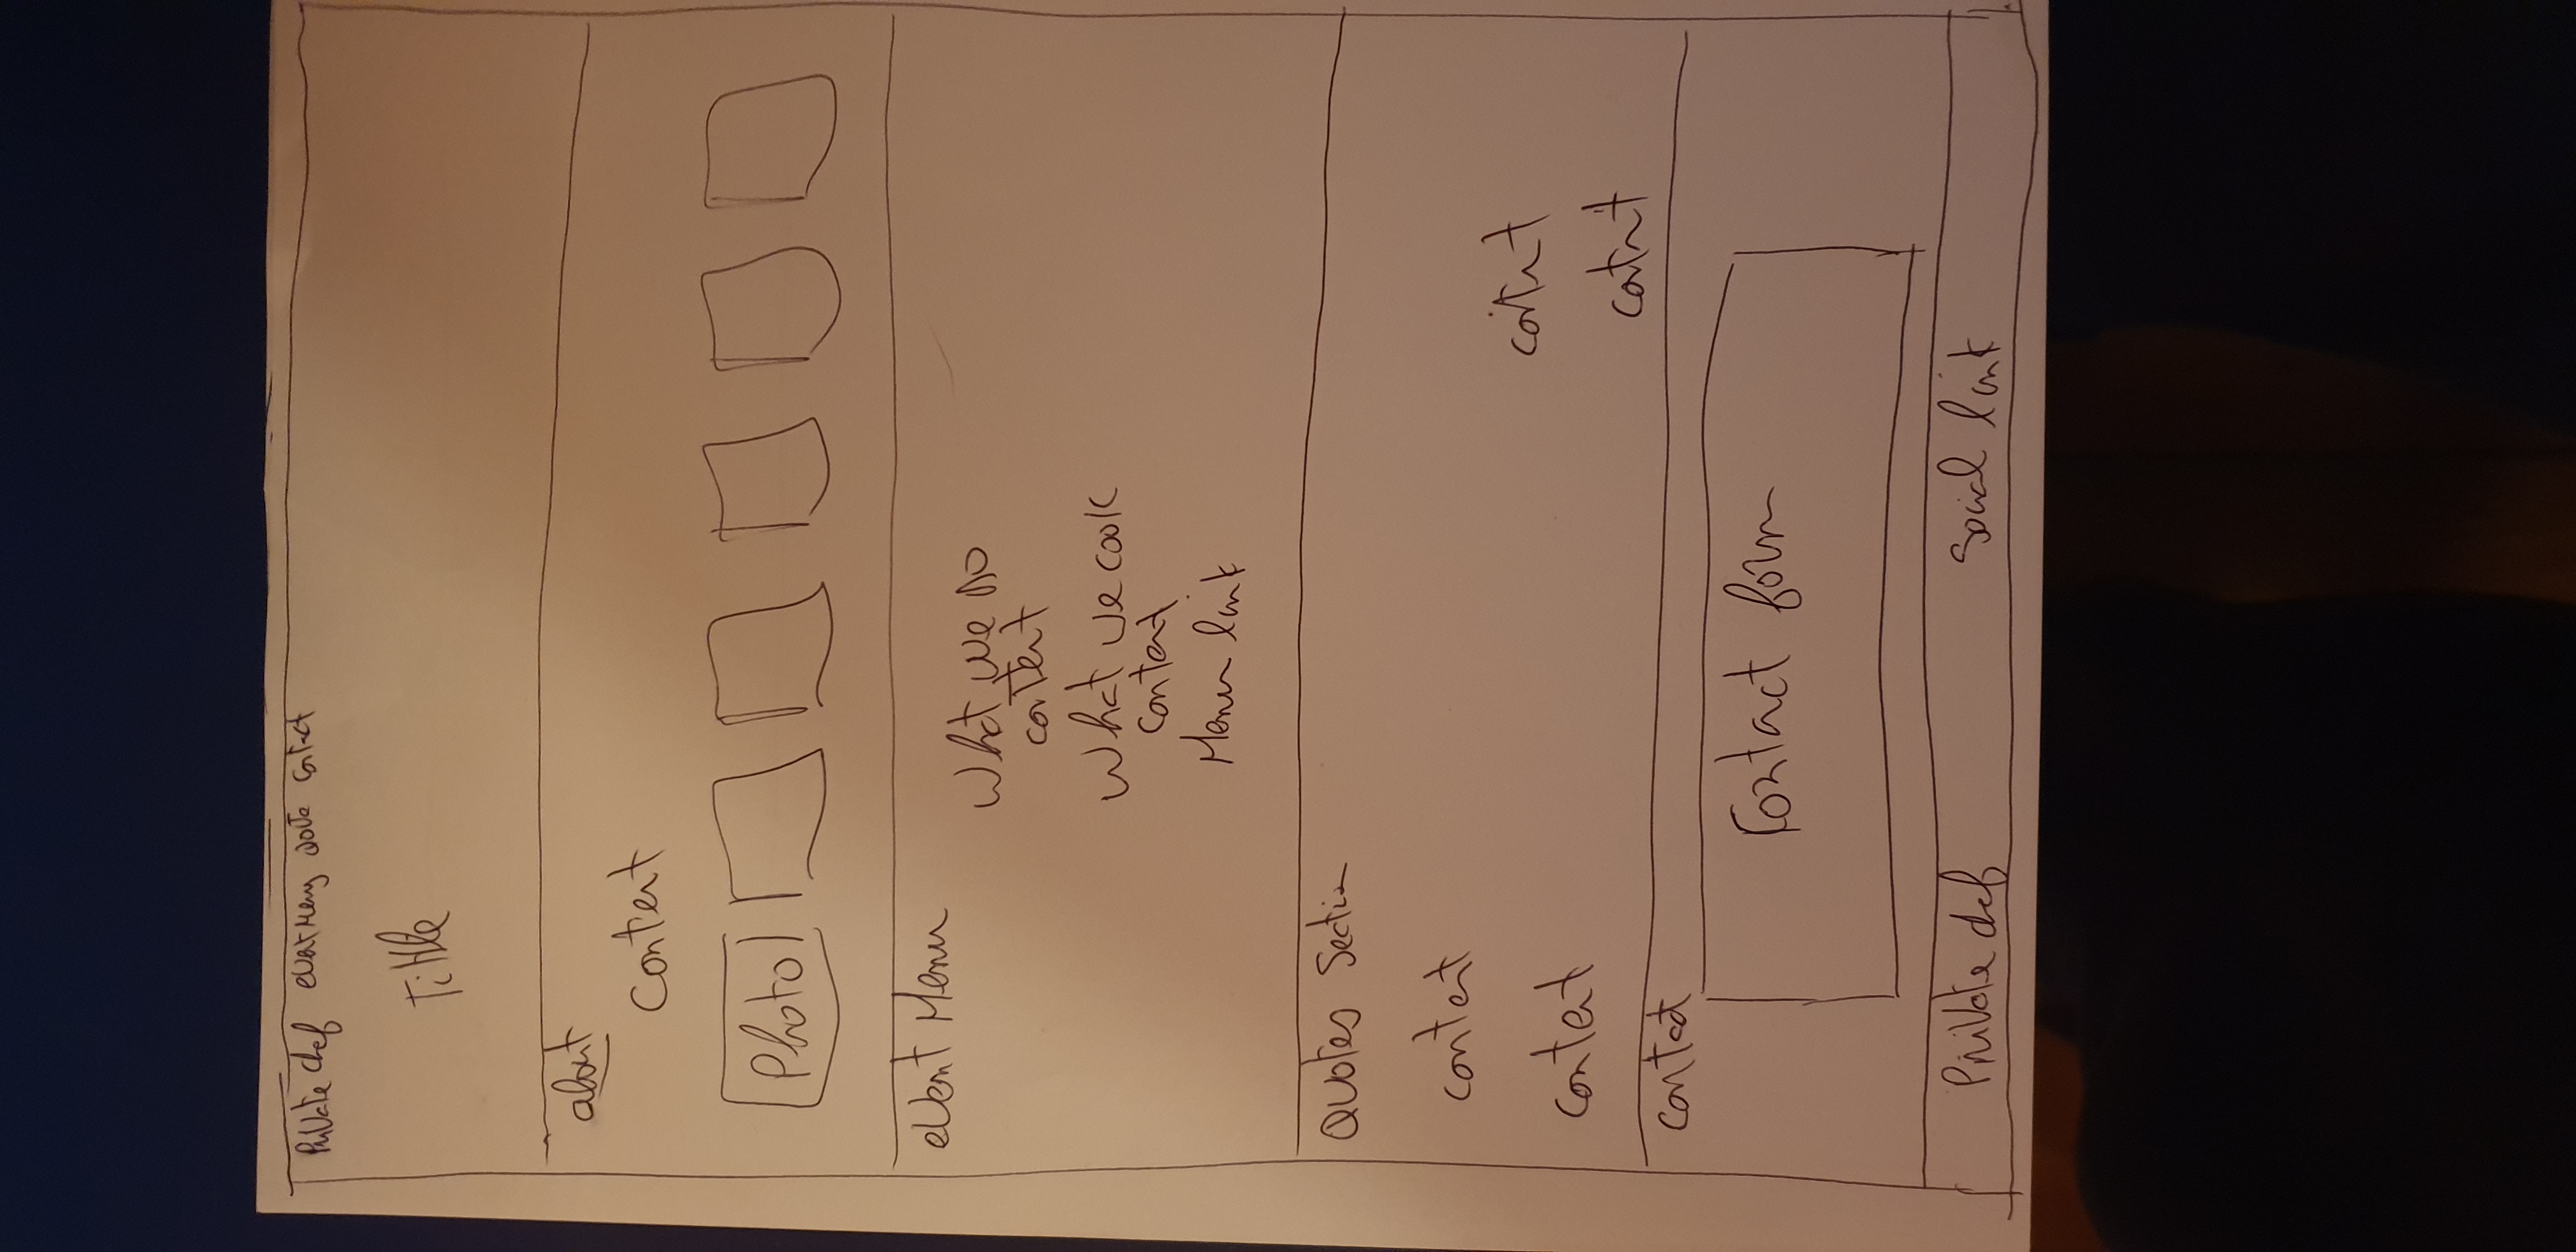 Private chef event Menu Quote Contact
Tittle
about
Content
Photo
event Menu
What we do
content
What we cook
content
Menu link
Quotes Section
content
content
content
content
contact
Contact form
Private chef
Social link